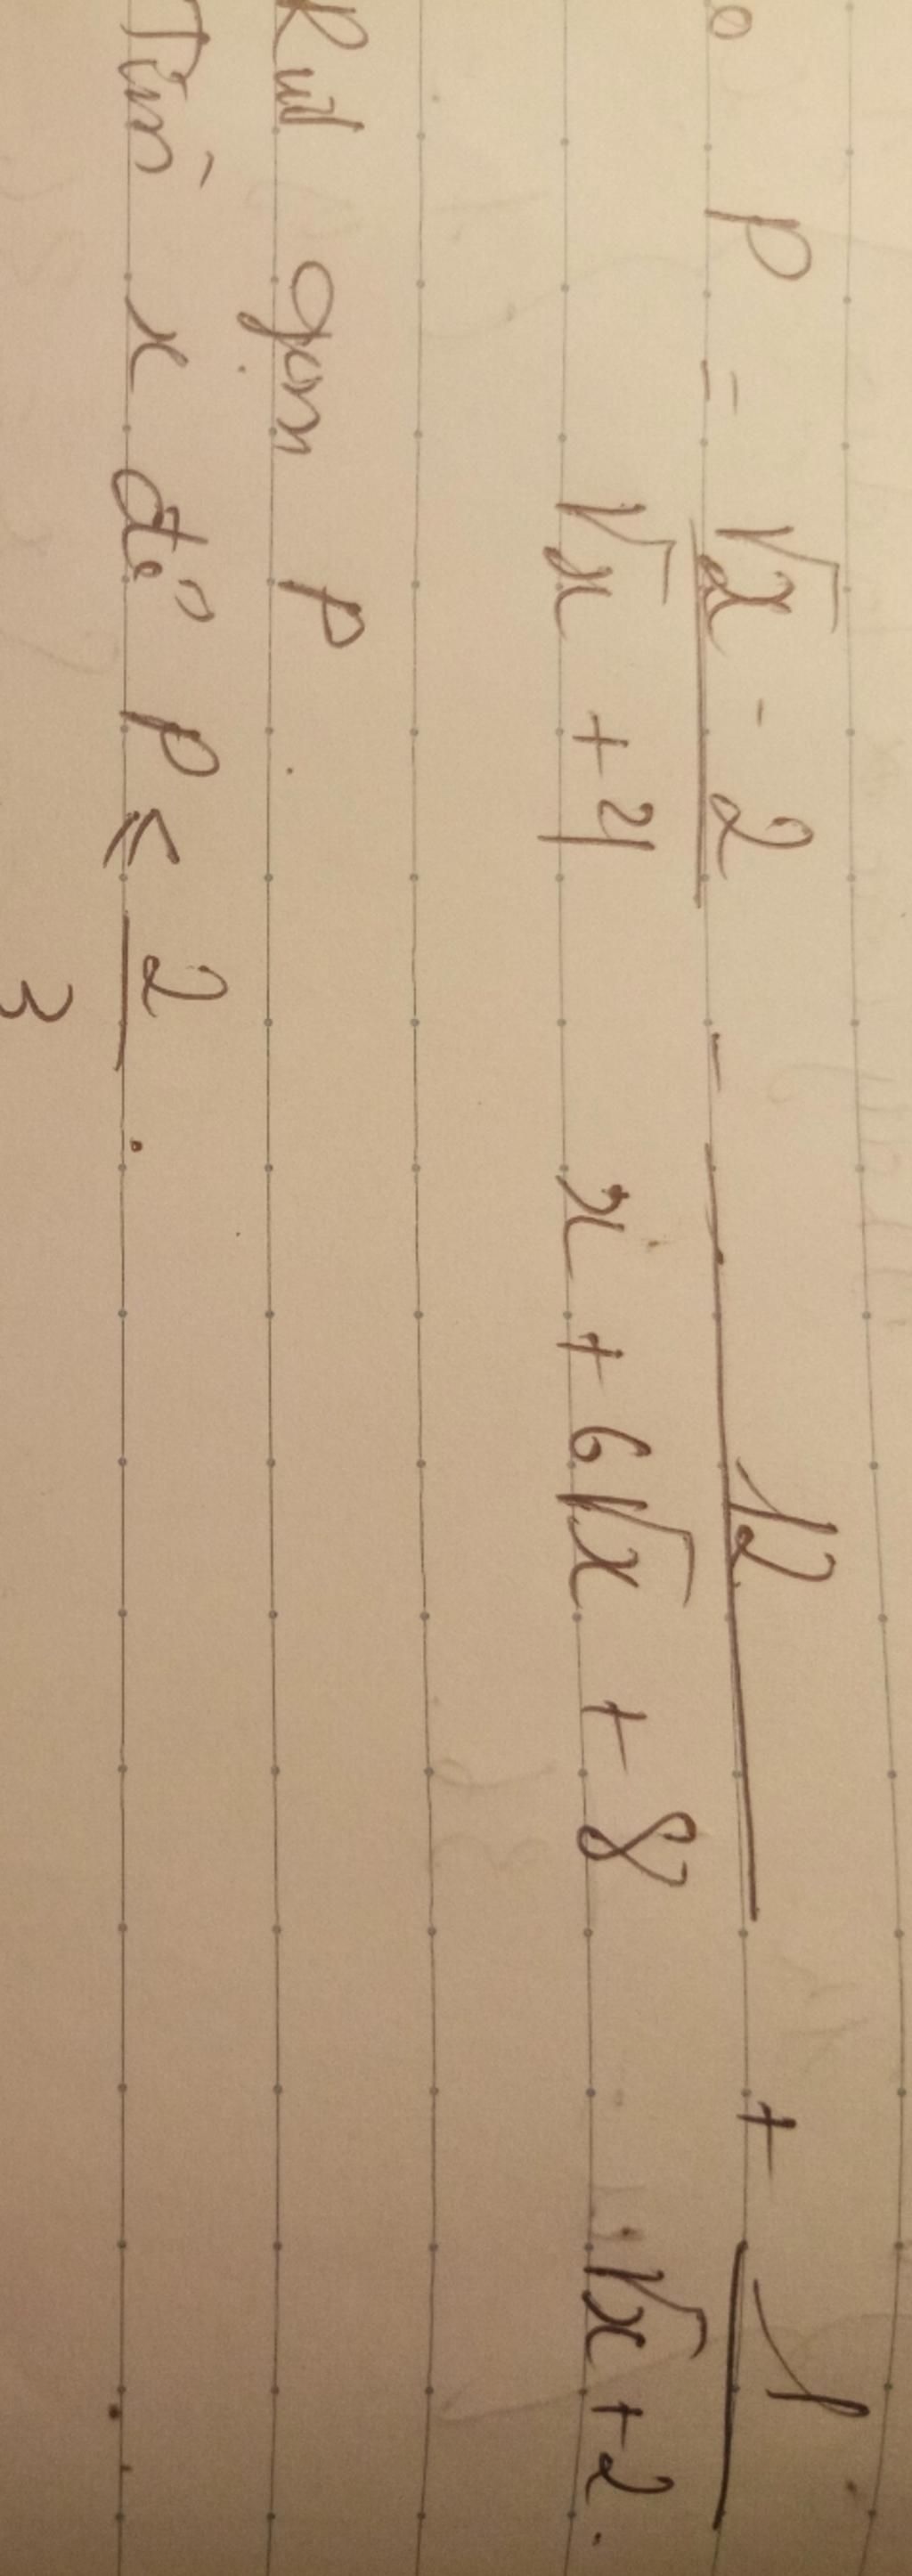 P = \frac{\sqrt{x} - 2}{\sqrt{x} + 4} - \frac{12}{x + 6\sqrt{x} + 8} + \frac{1}{\sqrt{x} + 2}.
Rút gọn P.
Tìm x để P ≤ \frac{2}{3}.